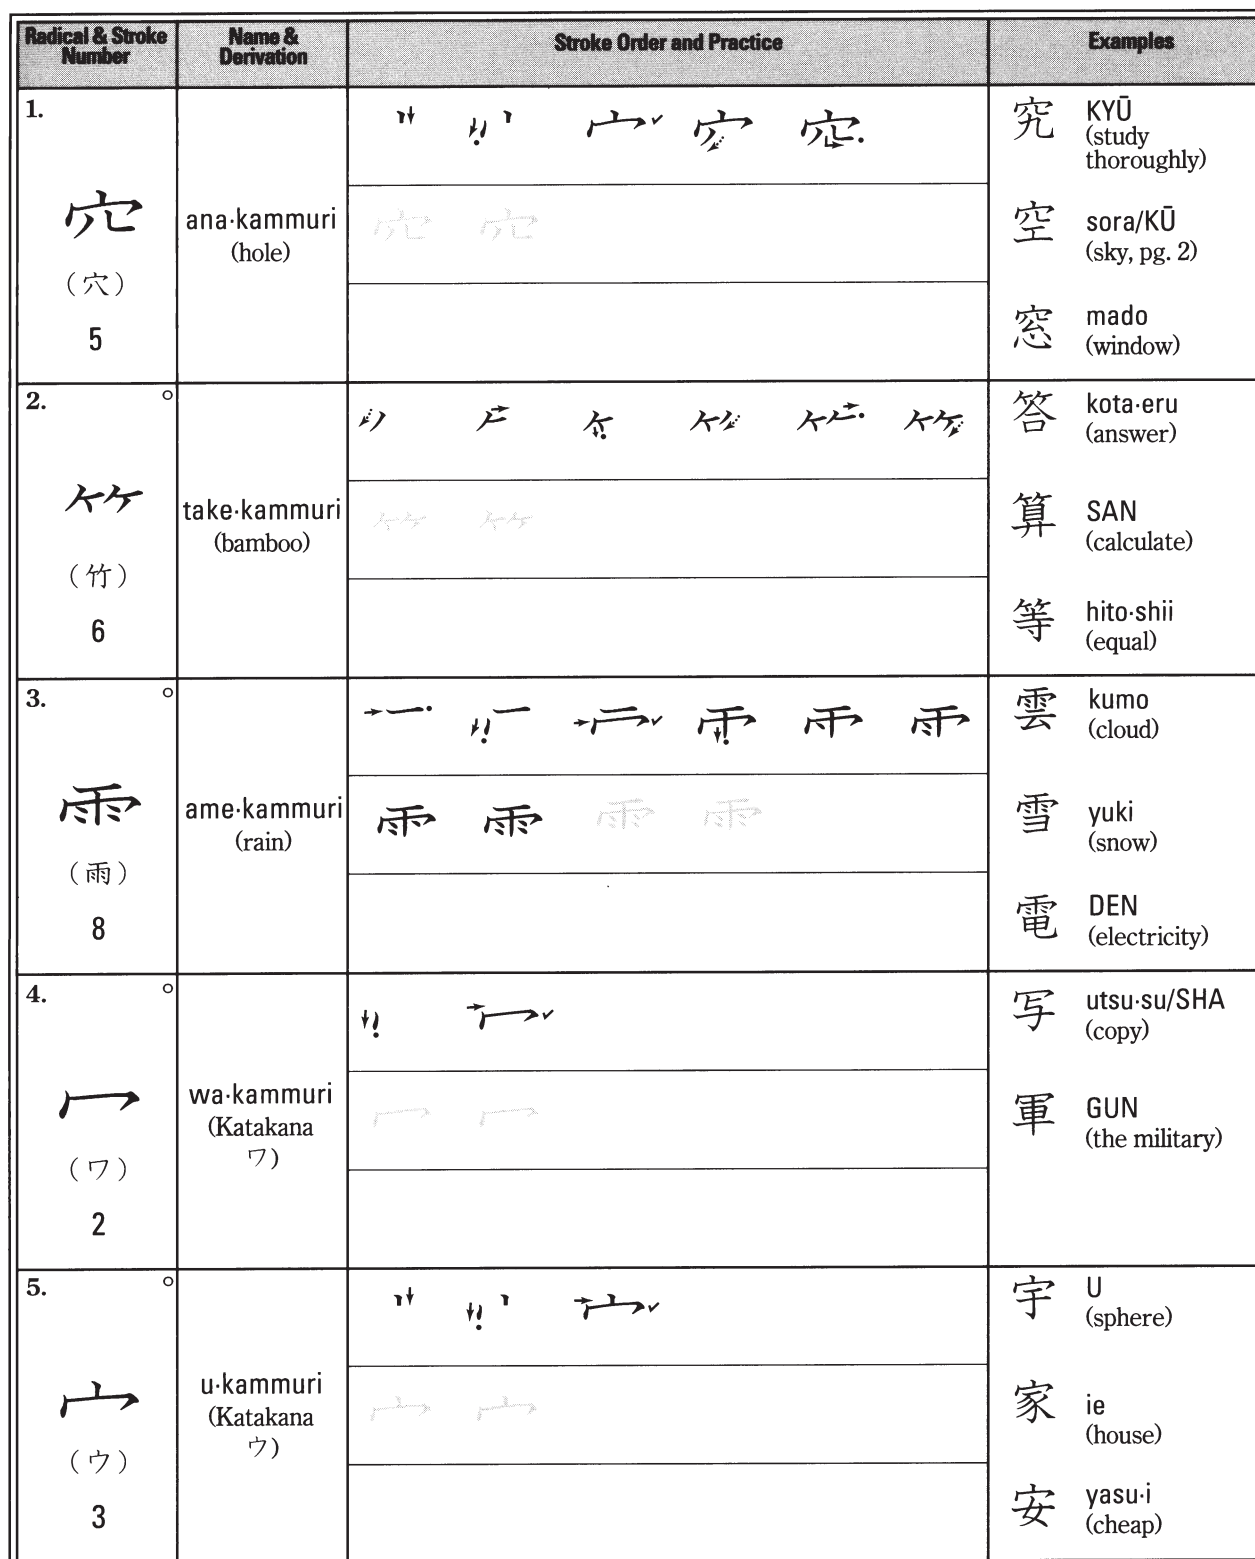 Radical & Stroke Number
Name & Derivation
Stroke Order and Practice
Examples
1.
穴
(穴)
5
ana·kammuri
(hole)
究 KYŪ
(study
thoroughly)
空 sora/KŪ
(sky, pg. 2)
窓 mado
(window)
2.
⺮
(竹)
6
take·kammuri
(bamboo)
答 kota·eru
(answer)
算 SAN
(calculate)
等 hito·shii
(equal)
3.
雨
(雨)
8
ame·kammuri
(rain)
雲 kumo
(cloud)
雪 yuki
(snow)
電 DEN
(electricity)
4.
冖
(ワ)
2
wa·kammuri
(Katakana
ワ)
写 utsu·su/SHA
(copy)
軍 GUN
(the military)
5.
宀
(ウ)
3
u·kammuri
(Katakana
ウ)
宇 U
(sphere)
家 ie
(house)
安 yasu·i
(cheap)